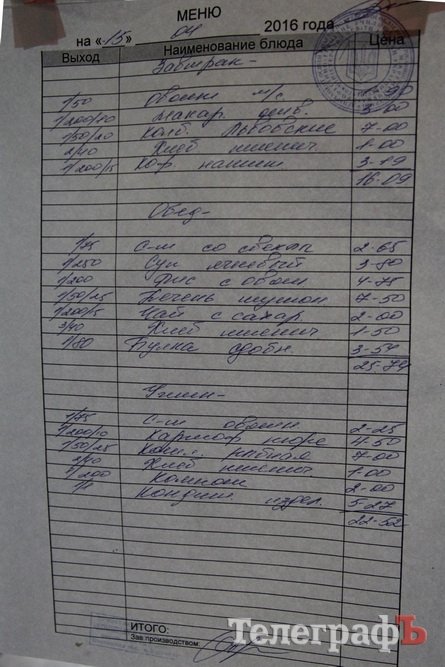 МЕНЮ
на «15» 04 2016 года
Выход Наименование блюда Цена
Завтрак -
1/50 Овощи
1/200/10 Макар. 3-00
1/50/20 Колб. Львовские 7-00
2/40 Хлеб пшенич 1-00
1/200/5 Коф. напит 3-19
16-09
Обед -
1/75 С-т со свеклы 2-65
1/250 Суп ячневый 3-80
1/200 Рис с овощ 4-75
1/50/25 Печень тушон 7-50
1/200/5 Чай с сахар 2-00
3/40 Хлеб пшенич 1-50
1/80 Булка сдобн 3-59
25-79
Ужин -
1/75 С-т овощн 2-25
1/200/10 Картоф пюре 4-50
1/50/25 рыбная 7-00
2/40 Хлеб пшенич 1-00
1/200 Компот 2-00
Кондит. издел. 5-27
22-52
ИТОГО:
Зав производством:
ТелеграфЪ